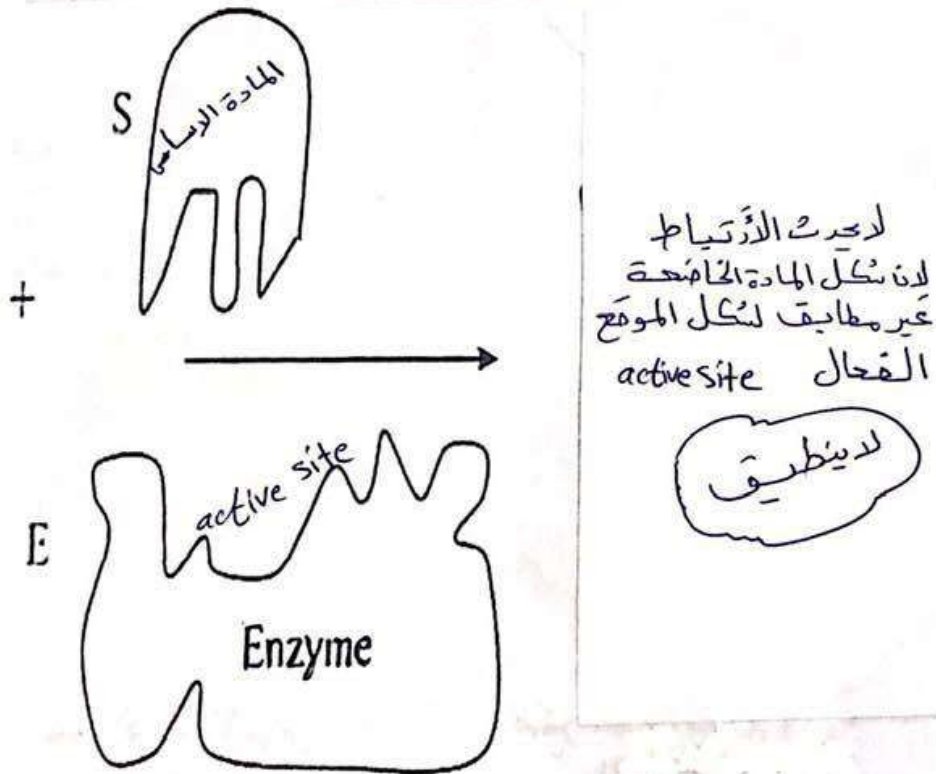 S
المادة الاساس
+
E
active site
Enzyme
لا يحدث الأرتباط
لان شكل المادة الخاضعة
غير مطابق لشكل الموقع
الفعال active site
لا ينطبق